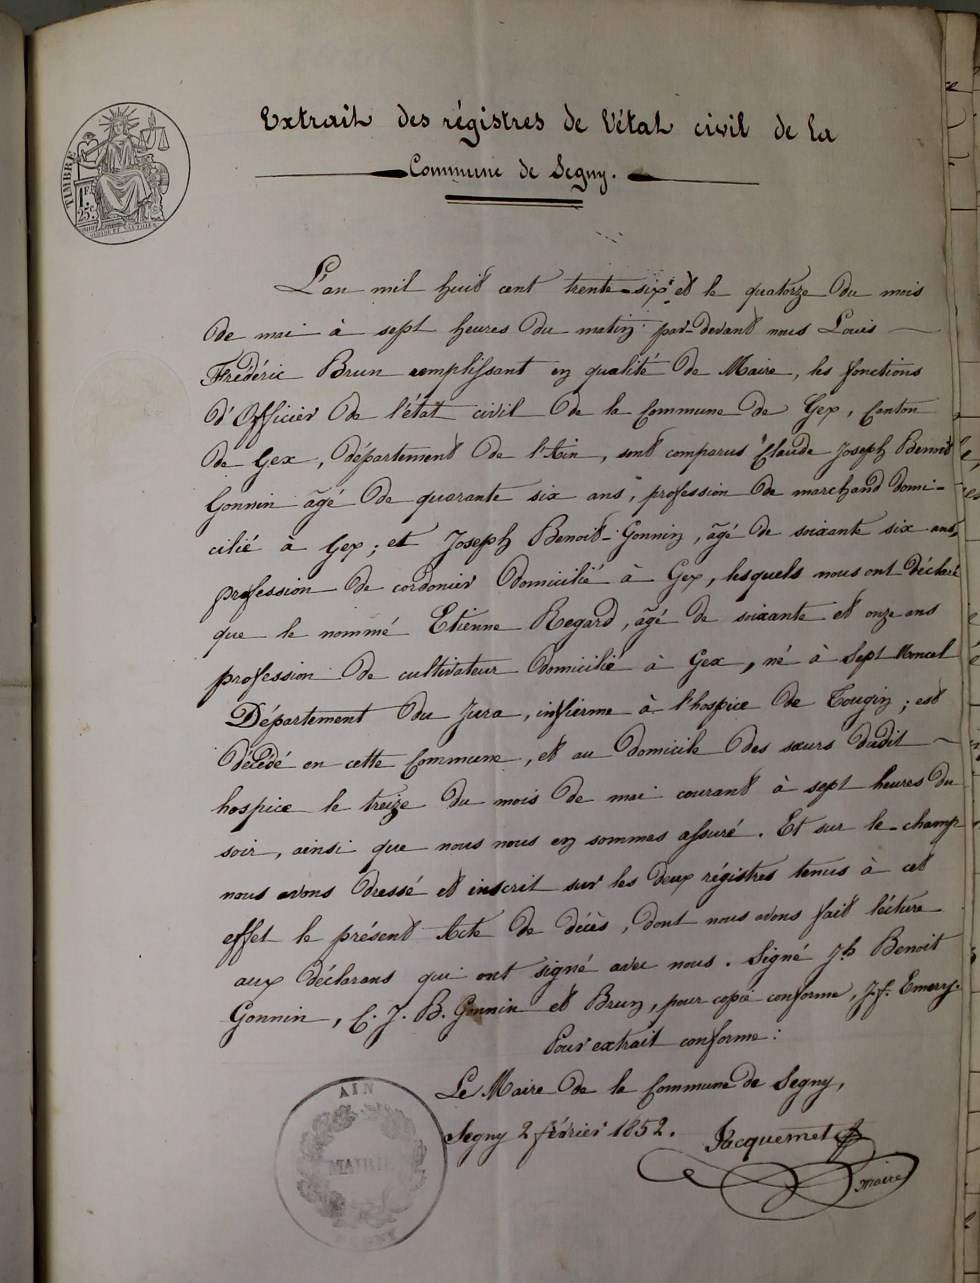 Extrait des régistres de l'état civil de la
Commune de Segny.
TIMBRE
1 F.
25 c.
L'an mil huit cent trente-six et le quatorze du mois
de mai à sept heures du matin par-devant nous Louis
Frédéric Brun remplissant en qualité de Maire, les fonctions
d'Officier de l'état civil de la Commune de Gex, Canton
de Gex, département de l'Ain, sont comparus Claude Joseph Benoit
Gonnin âgé de quarante six ans, profession de marchand domi-
cilié à Gex; et Joseph Benoit-Gonnin, âgé de soixante six ans,
profession de cordonier domicilié à Gex, lesquels nous ont déclaré
que le nommé Etienne Regard, âgé de soixante et onze ans
profession de cultivateur domicilié à Gex, né à Sept Moncel
Département du Jura, infirme à l'hospice de Tougin; est
décédé en cette Commune, et au domicile des sœurs dudit
hospice le treize du mois de mai courant à sept heures du
soir, ainsi que nous nous en sommes assuré. Et sur le-champ
nous avons dressé et inscrit sur les deux régistres tenus à cet
effet le présent Acte de décès, dont nous avons fait lécture
aux déclarans qui ont signé avec nous. Signé Jh Benoit
Gonnin, C. J. B. Gonnin et Brun, pour copie conforme, J. f. Emery.
Pour extrait conforme:
Le Maire de la Commune de Segny,
Segny 2 février 1852. Jacquemet
maire
AIN
MAIRIE